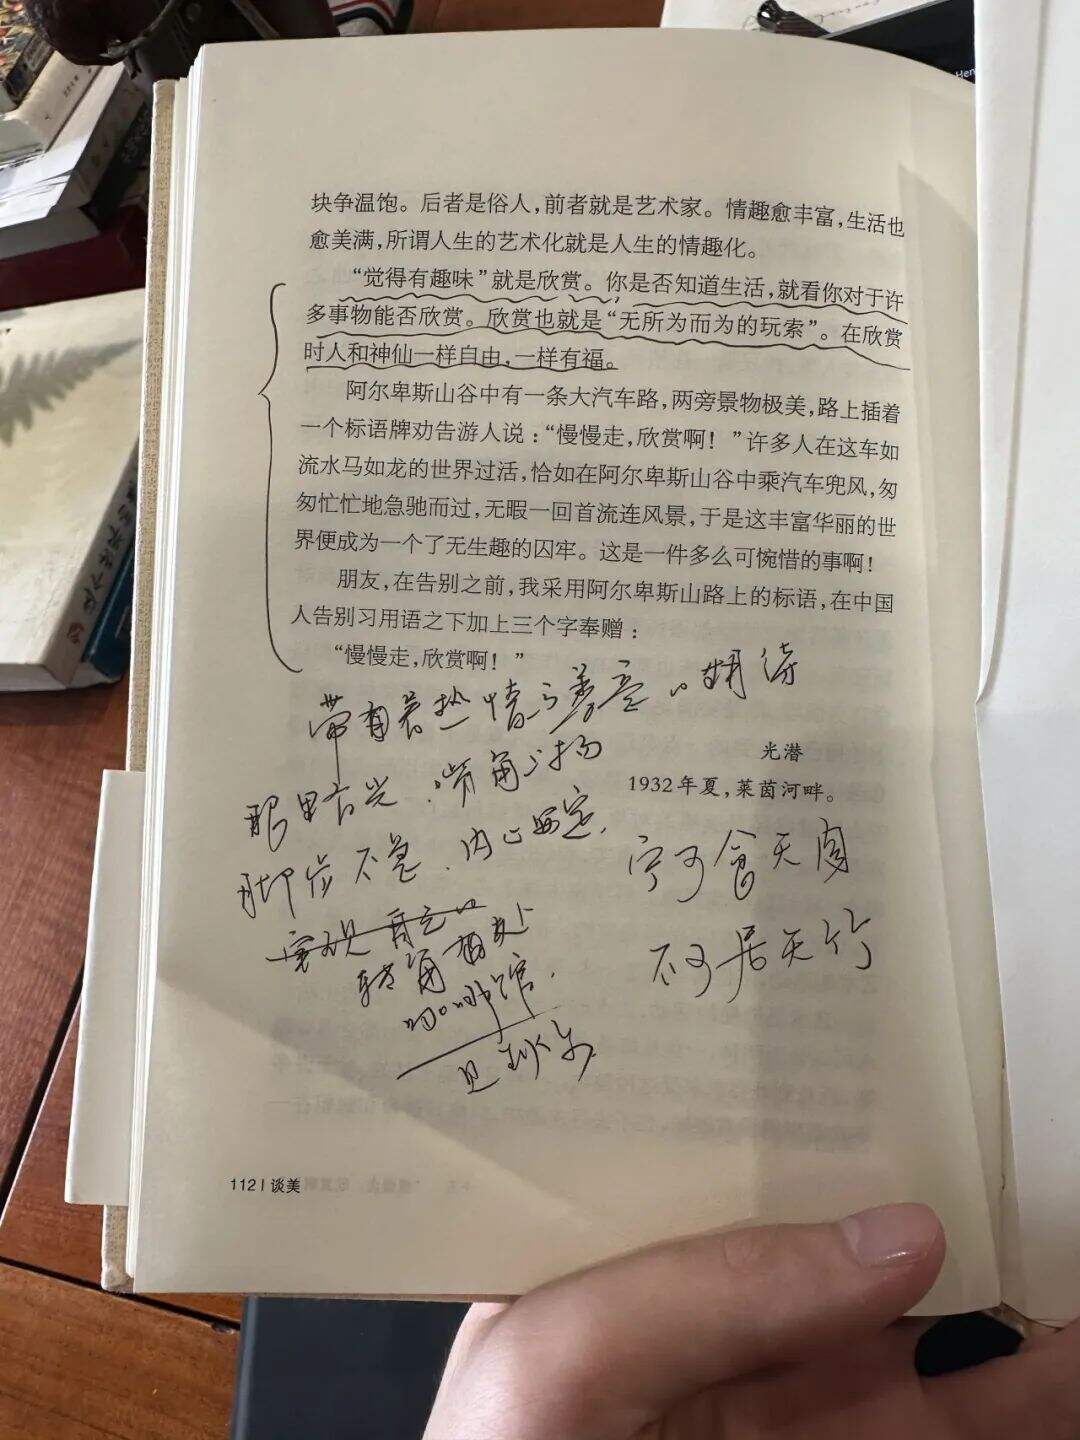 块争温饱。后者是俗人，前者就是艺术家。情趣愈丰富，生活也
愈美满，所谓人生的艺术化就是人生的情趣化。
“觉得有趣味”就是欣赏。你是否知道生活，就看你对于许
多事物能否欣赏。欣赏也就是“无所为而为的玩索”。在欣赏
时人和神仙一样自由，一样有福。
阿尔卑斯山谷中有一条大汽车路，两旁景物极美，路上插着
一个标语牌劝告游人说：“慢慢走，欣赏啊！”许多人在这车如
流水马如龙的世界过活，恰如在阿尔卑斯山谷中乘汽车兜风，匆
匆忙忙地急驰而过，无暇一回首流连风景，于是这丰富华丽的世
界便成为一个了无生趣的囚牢。这是一件多么可惋惜的事啊！
朋友，在告别之前，我采用阿尔卑斯山路上的标语，在中国
人告别习用语之下加上三个字奉赠：
“慢慢走，欣赏啊！”
带着热情期待
光潜
1932年夏，莱茵河畔。
眼里有光，嘴角上扬
脚步不急，内心安定，
宁可食无肉
不可居无竹
转角
咖啡馆，
112 | 谈美